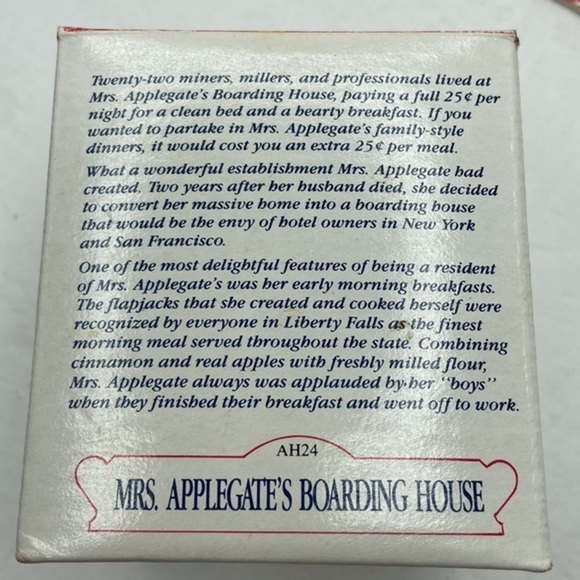 Twenty-two miners, millers, and professionals lived at
Mrs. Applegate's Boarding House, paying a full 25¢ per
night for a clean bed and a hearty breakfast. If you
wanted to partake in Mrs. Applegate's family-style
dinners, it would cost you an extra 25¢ per meal.
What a wonderful establishment Mrs. Applegate had
created. Two years after her husband died, she decided
to convert her massive home into a boarding house
that would be the envy of hotel owners in New York
and San Francisco.
One of the most delightful features of being a resident
of Mrs. Applegate's was her early morning breakfasts.
The flapjacks that she created and cooked herself were
recognized by everyone in Liberty Falls as the finest
morning meal served throughout the state. Combining
cinnamon and real apples with freshly milled flour,
Mrs. Applegate always was applauded by her "boys"
when they finished their breakfast and went off to work.
AH24
MRS. APPLEGATE'S BOARDING HOUSE